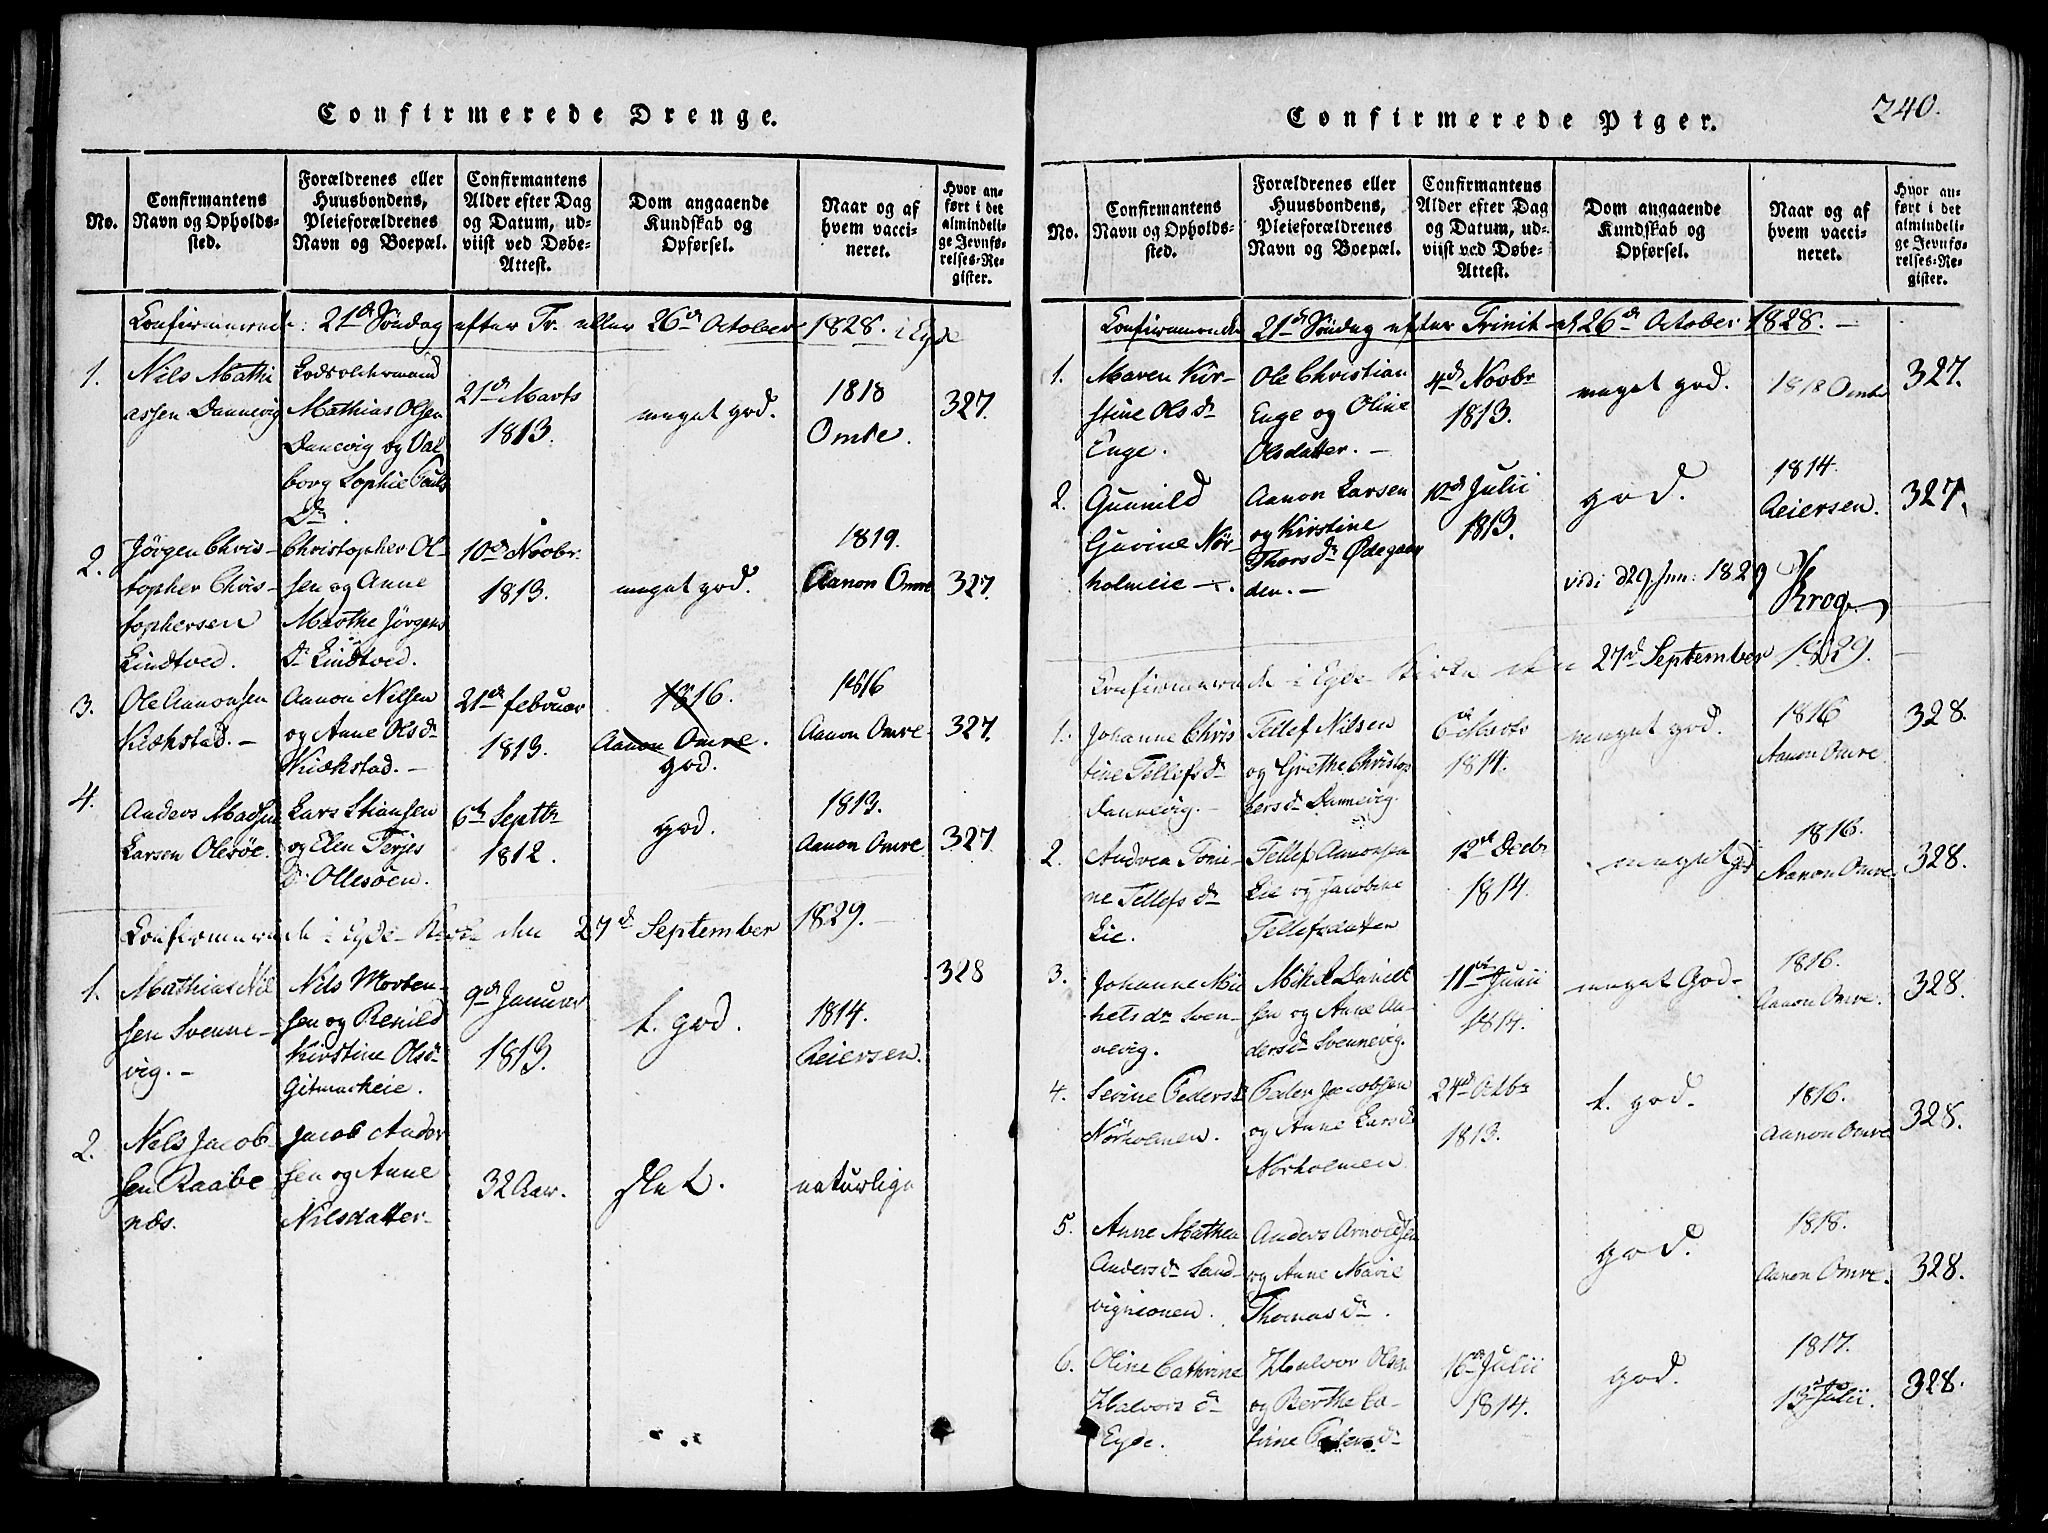 Confirmerede Drenge.
No.
Confirmantens
Navn og Opholds-
sted.
Forældrenes eller
Huusbondens,
Pleieforældrenes
Navn og Boepæl.
Confirmantens
Alder efter Dag
og Datum, ud-
viist ved Døbe-
Attest.
Dom angaaende
Kundskab og
Opførsel.
Naar og af
hvem vacci-
neret.
Hvor an-
ført i det
almindeli-
ge Jevnfø-
relses-Re-
gister.
Confirmerede: 21de Søndag efter Tr. eller 26de October 1828. i Eyde
1.
Nils Mathi
assen Dannevig
Lodsoldermand
Mathias Olsen
Danevig og Val
borg Sophie Pauls
Dr.
21de Marts
1813.
meget god.
1818
Omre.
327.
2.
Jörgen Chris-
topher Chris-
tophersen
Lindtved.
Christopher Ol-
sen og Anne
Marthe Jörgens
Dr Lindtved.
10de Novbr.
1813.
meget god.
1819.
Aanon Omre
327.
3.
Ole Aanonsen
Kiækstad. -
Aanon Nilsen
og Anne Olsdr
Kiækstad. -
21de februar
1813.
1816.
Aanon Omre.
god.
1816
Aanon Omre.
327.
4.
Anders Madsen
Larsen Olesöe.
Lars Stiansen
og Elen Terjes
Dr Ollesöen.
6te Septbr
1812.
god.
1813.
Aanon Omre
327
Confirmerede i Eyde Kirke den 27de September 1829. -
1.
Mathias Nil
sen Svenne-
vig. -
Nils Morten-
sen og Renild
Kirstine Olsdr
Gitmarkeie.
9de Januar
1813.
t. god.
1814.
Reiersen.
328
2.
Nels Jacob-
sen Raabe
næs.
Jacob Ander
sen og Anne
Nilsdatter-
32 Aar.
slet.
naturlige
240.
Confirmerede Piger.
No.
Confirmantens
Navn og Opholds-
sted.
Forældrenes eller
Huusbondens,
Pleieforældrenes
Navn og Boepæl.
Confirmantens
Alder efter Dag
og Datum, ud-
viist ved Døbe-
Attest.
Dom angaaende
Kundskab og
Opførsel.
Naar og af
hvem vacci-
neret.
Hvor an-
ført i det
almindeli-
ge Jevnfø-
relses-Re-
gister.
Confirmerede 21de Söndag efter Trinit 26de October 1828. -
1.
Maren Kir-
stine Olsdr
Enge.
Ole Christian
Enge og Oline
Olsdatter. -
4de Novbr
1813.
meget god.
1818 Omre
327.
2.
Gunnild
Gurine Nör-
holmeie -.
Aanon Larsen
og Kirstine
Thorsdr Ødegaar
den. -
10de Julii
1813.
god.
1814.
Reiersen.
327.
vidi d 29 Jun: 1829
Krog
Confirmerede i Eyde Kirke den 27de September 1829.
1.
Johanne Chris
tine Tellefsdr
Dannevig. -
Tellef Nilsen
og Grethe Christop
hersdr Dannevig.
6te Marts
1814.
meget god.
1816
Aanon Omre.
328.
2.
Andrea Toni-
ne Tellefsdr
Lie.
Tellef Aanonsen
Lie og Jacobine
Tellefsdatter
12te Decbr
1814.
meget god
1816.
Aanon Omre.
328.
3.
Johanne Mi
kelsdr Sven-
nevig.
Mikel Daniel
sen og Anne An-
dersdr Svennevig.
11te Junii
1814.
meget God-
1816.
Aanon Omre.
328.
4.
Sevine Pedersdr
Nörholmen.
Peder Jacobsen
og Anne Larsdr
Norholmen
24de Octbr
1813.
t. god.
1816.
Aanon Omre
328.
5.
Anne Mathea
Andersdr Sand-
vigmonen.
Anders Arnoldsen
og Anne Marie
Thomasdr.
god.
1818.
Aanon Omre.
328.
6.
Oline Cathrine
Halvorsdr
Eyde.
Halvor Olsen
og Berthe Ca-
trine Pedersdr
16de Julii
1814.
god.
1817.
13de Julii.
328.